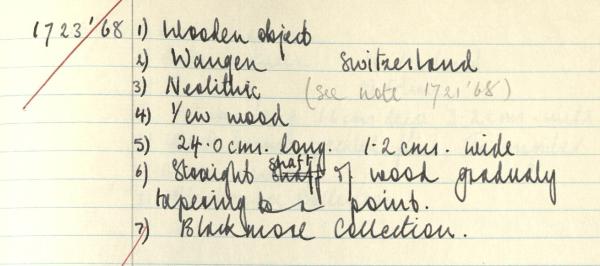 1723'68 1) Wooden object
2) Wangen Switzerland
3) Neolithic (see note 1721'68)
4) Yew wood
5) 24.0 cms. long. 1.2 cms. wide
6) Straight shaft of wood gradualy
tapering to a point.
7) Blackmore Collection.